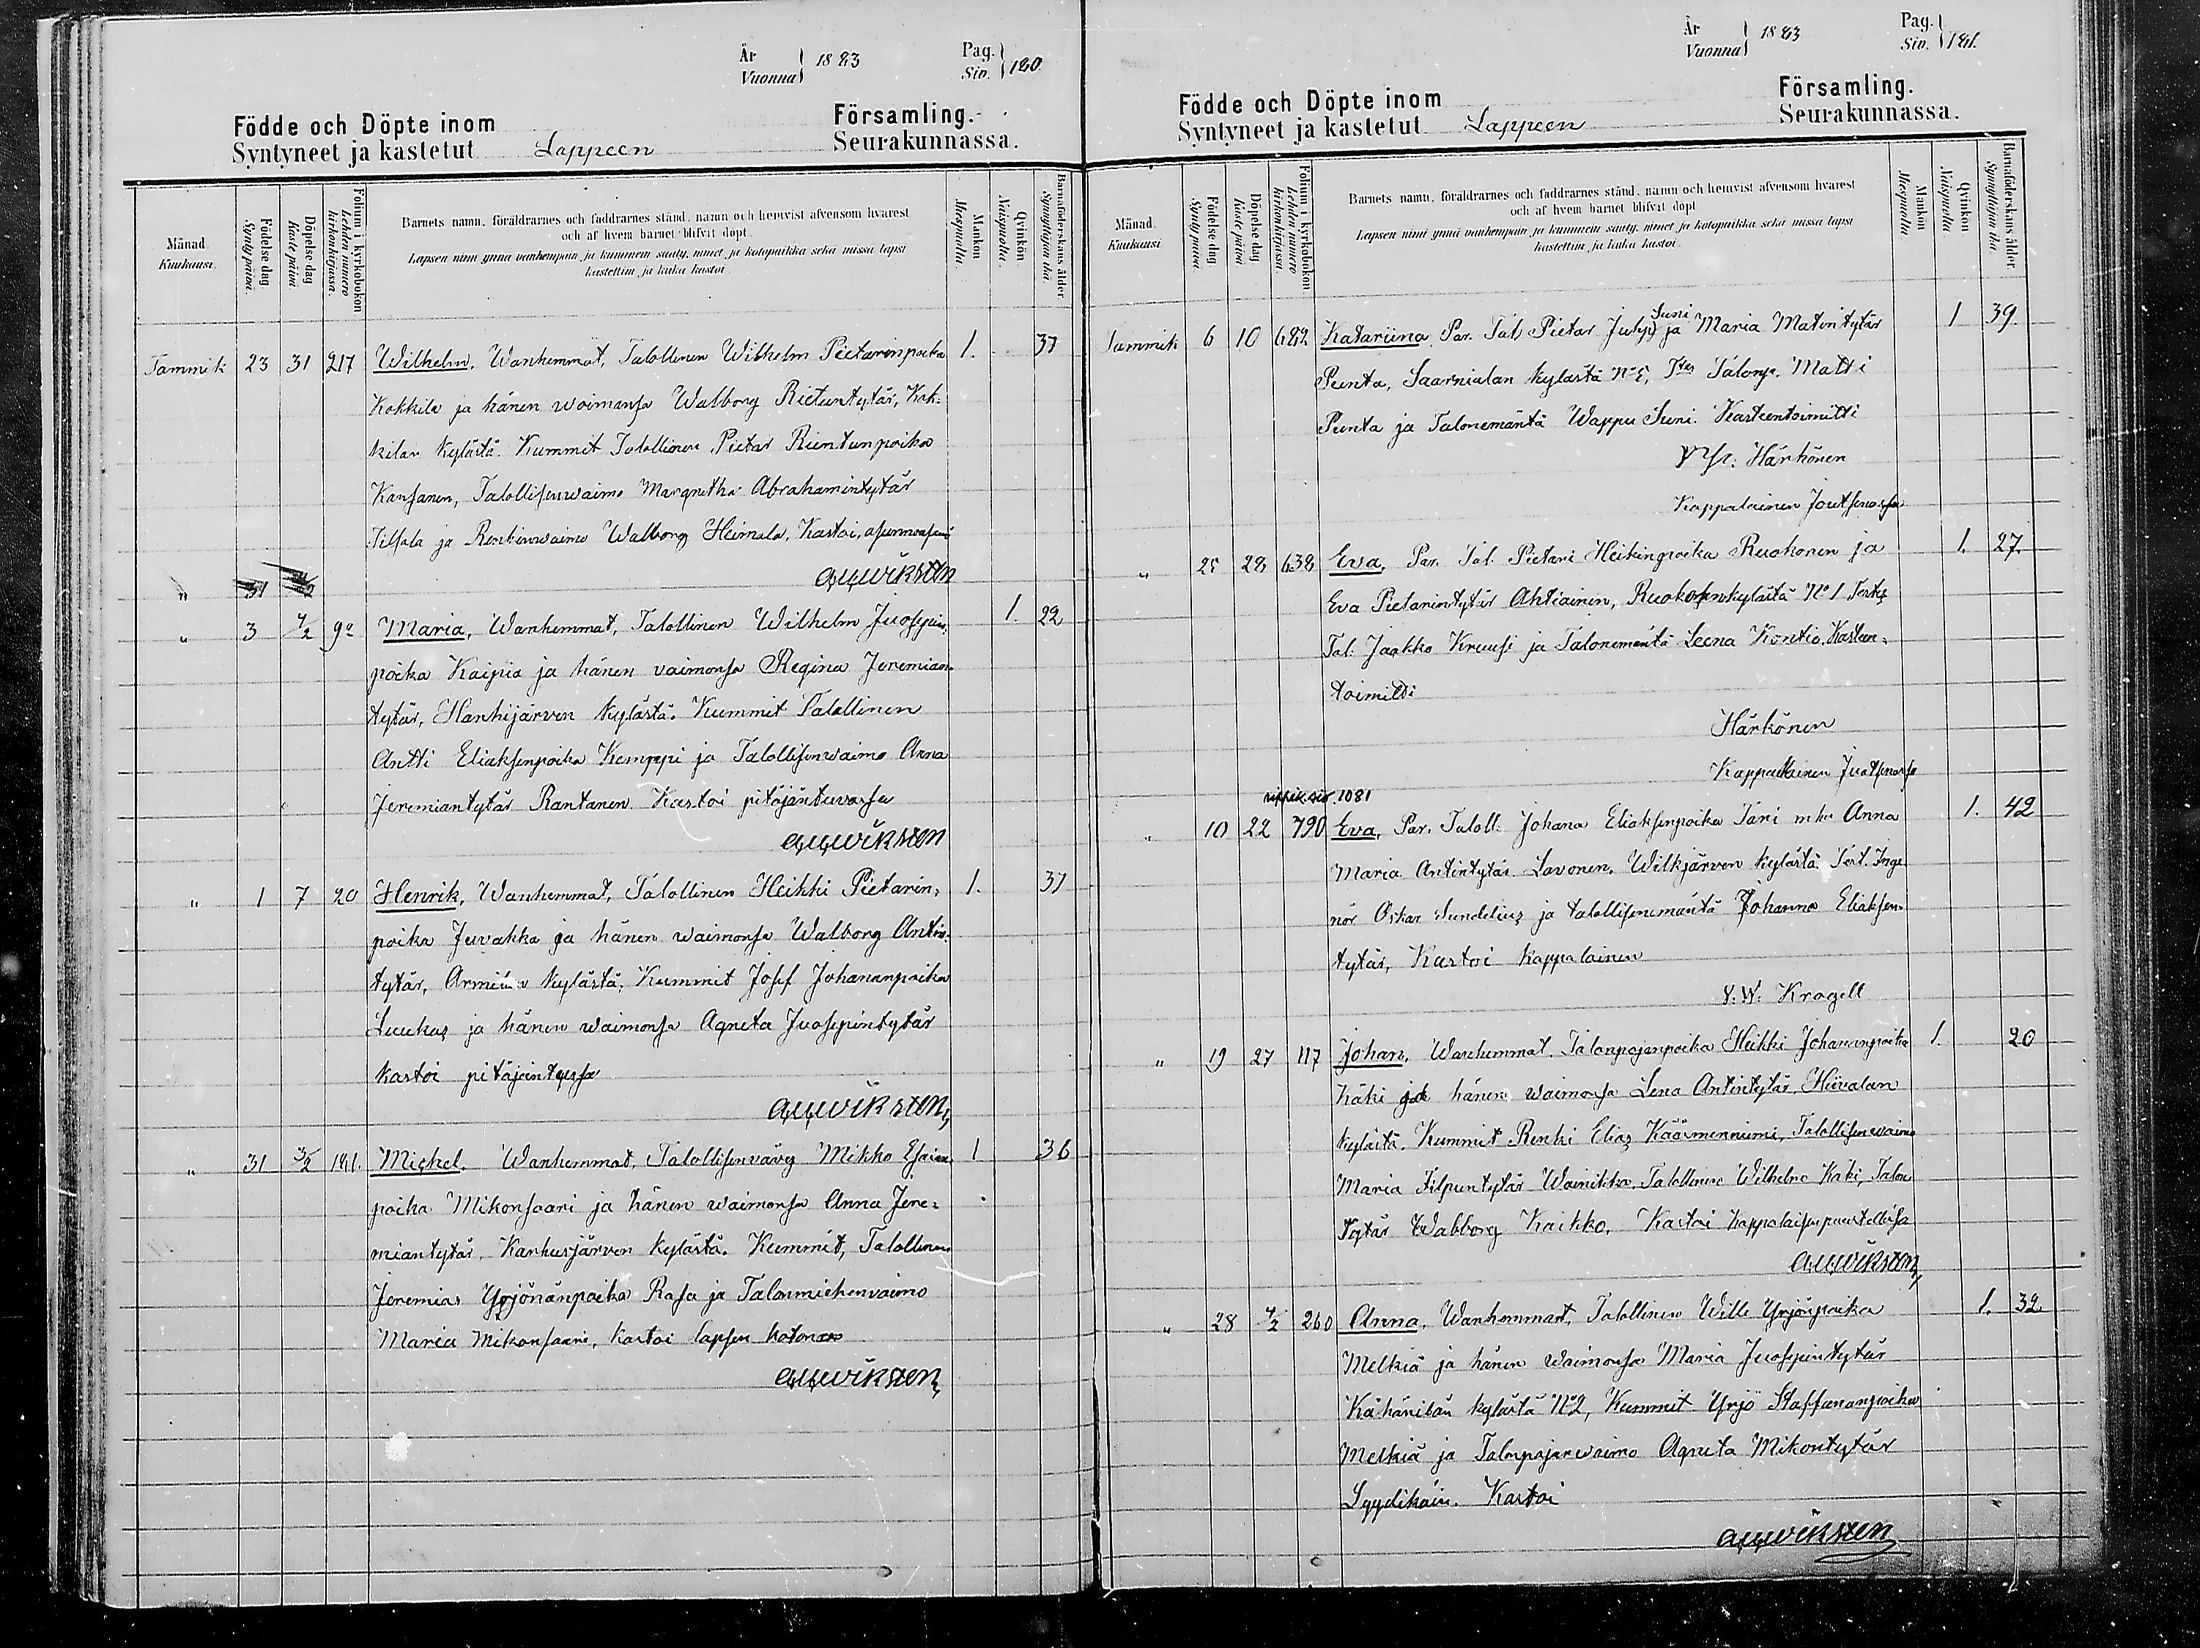 År
Vuonna 1883
Pag.
Siv. 180
Födde och Döpte inom Församling.
Syntyneet ja kastetut Lappeen Seurakunnassa.
Månad.
Kuukausi.
Födelse dag.
Synty päivä.
Döpelse dag
Kaste päivä
Folium i kyrkobokon
Lehden numero
kirkonkirjassa.
Barnets namn, föräldrarnes och faddrarnes stånd, namn och hemvist äfvensom hvarest
och af hvem barnet blifvit döpt.
Lapsen nimi ynnä vanhempain ja kummein sääty, nimet ja kotopaikka sekä missä lapsi
kastettiin ja kuka kastoi.
Mankön
Miespuolia.
Qvinkön
Naispuolia.
Barnaföderskans ålder.
Synnyttäjän ikä.
Tammik 23 31 217 Wilhelm. Wanhemmat, Talollinen Wilhelm Pietarinpoika 1. 37
Kokkila ja hänen waimonsa Walborg Rietuntytär, Kok-
kilan kylästä. Kummit Talollinen Pietar Rientunpoika
Kansanen, Talollisenwaimo Margretha Abrahamintytär
Tilsala ja Renkinwaimo Walborg Heimala, Kastoi, asunnossani
" 31
" 3 4/2 92 Maria, Wanhemmat, Talollinen Wilhelm Juosepin- 1. 22
poika Kaipia ja hänen vaimonsa Regina Jeremian-
tytär, Hanhijärven kylästä. Kummit Talollinen
Antti Eliaksenpoika Kemppi ja Talollisenwaimo Anna
Jeremiantytär Rantanen. Kastoi pitäjäntuvassa
" 1 7 20 Henrik, Wanhemmat, Talollinen Heikki Pietarin- 1. 37
poika Juvakka ja hänen waimonsa Walborg Antin-
tytär, Armilan kylästä, Kummit Josef Johananpoika
Luukas ja hänen waimonsa Agneta Juosepintytär
kastoi
" 31 3/2 181. Michel. Wanhemmat, Talollisenvävy Mikko Esaian- 1 36
poika Mikonsaari ja hänen waimonsa Anna Jere-
miantytär, Kanhusjärven kylästä. Kummit, Talollinen
Jeremias Yrjönänpoika Rasa ja Talonmiehenvaimo
Maria Mikonsaari, kastoi lapsen kotona
År
Vuonna 1883
Pag.
Siv. 181.
Födde och Döpte inom Församling.
Syntyneet ja kastetut Lappeen Seurakunnassa.
Månad.
Kuukausi.
Födelse dag.
Synty päivä.
Döpelse dag
Kaste päivä
Folium i kyrkobokon
Lehden numero
kirkonkirjassa.
Barnets namn, föräldrarnes och faddrarnes stånd, namn och hemvist äfvensom hvarest
och af hvem barnet blifvit döpt
Lapsen nimi ynnä vanhempain ja kummein sääty, nimet ja kotopaikka sekä missä lapsi
kastettiin ja kuka kastoi.
Mankön
Miespuolia
Qvinkön
Naispuolia.
Barnaföderskans ålder.
Synnyttäjän ikä.
Suni
Tammik 6 10 682 Katariina, Par. Tal. Pietar ja Maria Matintytär 1 39.
Punta, Saarnialan kylästä Matti
Punta ja Talonemäntä Wappu Suni. Kasteentoimitti
Härkönen
Kappalainen Joutsenossa
" 25 28 638 Eva, Par. Tal. Pietari Heikinpoika Ruokonen ja 1. 27.
Eva Pietarintytär Ahtiainen, No 1
Tal. Jaakko Kruusi ja Talonemäntä Leena Kontio, Kasteen-
toimitti
Härkönen
Kappalainen Joutsenossa
rippik. siv. 1081
" 10 22 790 Eva, Par. Taloll. Johana Eliaksenpoika Täni Anna 1. 42
Maria Antintytär Lavonen, Wilkjärven kylästä. Test. Inge-
niör Oskar Sundelius ja talollisenemäntä Johanna Eliaksen-
tytär, Kastoi kappalainen
Kragell
" 19 27 117 Johan, Wanhemmat. Talonpojanpoika Heikki Johananpoika 1. 20
Käki ja hänen waimonsa Lena Antintytär, Hiivalan
kylästä. Kummit Renki Elias Käärmenniemi, Talollisenwaimo
Maria Filpuntytär Wainikka, Talollinen Wilhelm Käki, Talon-
tytär Walborg Kaikko, Kastoi
" 28 4/2 260 Anna, Wanhemmat, Talollinen Wille Yrjönpoika 1. 32
Melkiä ja hänen waimonsa Maria Juosepintytär
Kähänilän kylästä No 2, Kummit Yrjö Staffananpoika
Melkiä ja Talonpojanwaimo Agneta Mikontytär
Lyydikäin. Kastoi